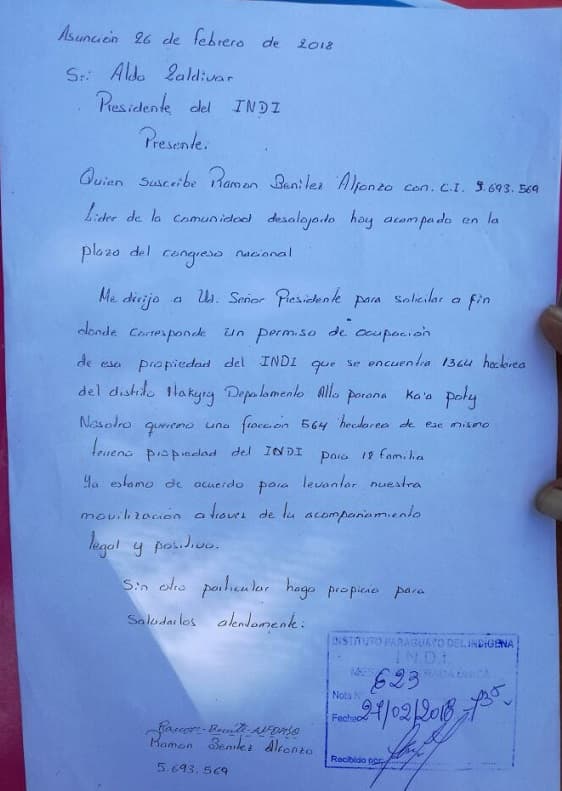 Asunción 26 de febrero de 2018
Sr: Aldo Zaldivar
Presidente del INDI
Presente.
Quien suscribe Ramon Benitez Alfonzo con. C.I. 5.693.569
Lider de la comunidad desalojado hoy acampado en la
plaza del congreso nacional
Me dirijo a Ud. Señor Presidente para solicitar a fin
donde corresponde un permiso de ocupación
de esa propiedad del INDI que se encuentra 1364 hectarea
del distito Itakyry Departamento Alto parana Ka'a poty
Nosotro queremo una fracción 564 hectarea de ese mismo
terreno propiedad del INDI para 18 familia
Ya estamo de acuerdo para levantar nuestra
movilización a traves de tu acompañamiento
legal y positivo.
Sin otro particular hago propicio para
Saludarlos atentamente.
INSTITUTO PARAGUAYO DEL INDIGENA
I.N.D.I.
MESA DE ENTRADA UNICA
Nota N° 623
Fecha: 27/02/2018
Recibido por:
Ramon Benitez Alfonzo
5.693.569